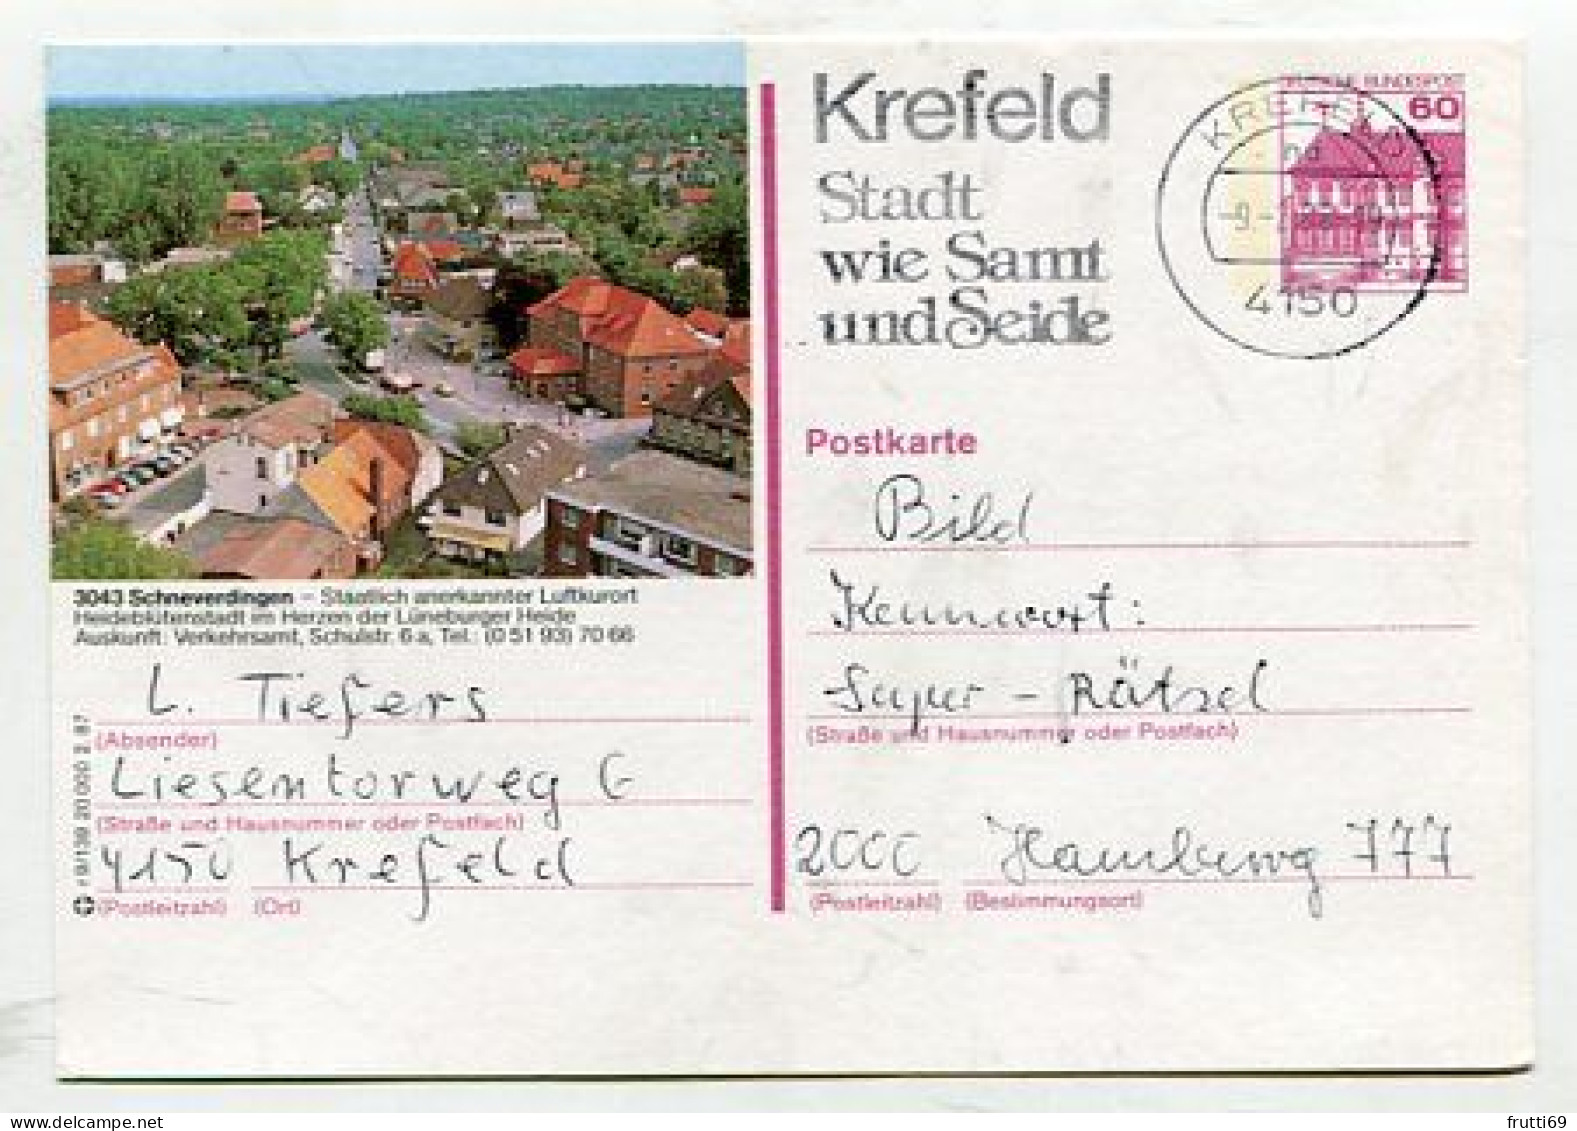 Krefeld
Stadt
wie Samt
und Seide
DEUTSCHE BUNDESPOST
60
KREFELD
4150
Postkarte
Bild
Kennwort:
Super - Rätsel
(Straße und Hausnummer oder Postfach)
2000 Hamburg 777
(Postleitzahl) (Bestimmungsort)
3043 Schneverdingen – Staatlich anerkannter Luftkurort
Heideblütenstadt im Herzen der Lüneburger Heide
Auskunft: Verkehrsamt, Schulstr. 6 a, Tel. (0 51 93) 70 66
L. Tiefers
(Absender)
Liesentorweg 6
(Straße und Hausnummer oder Postfach)
4150 Krefeld
(Postleitzahl) (Ort)
frutti69